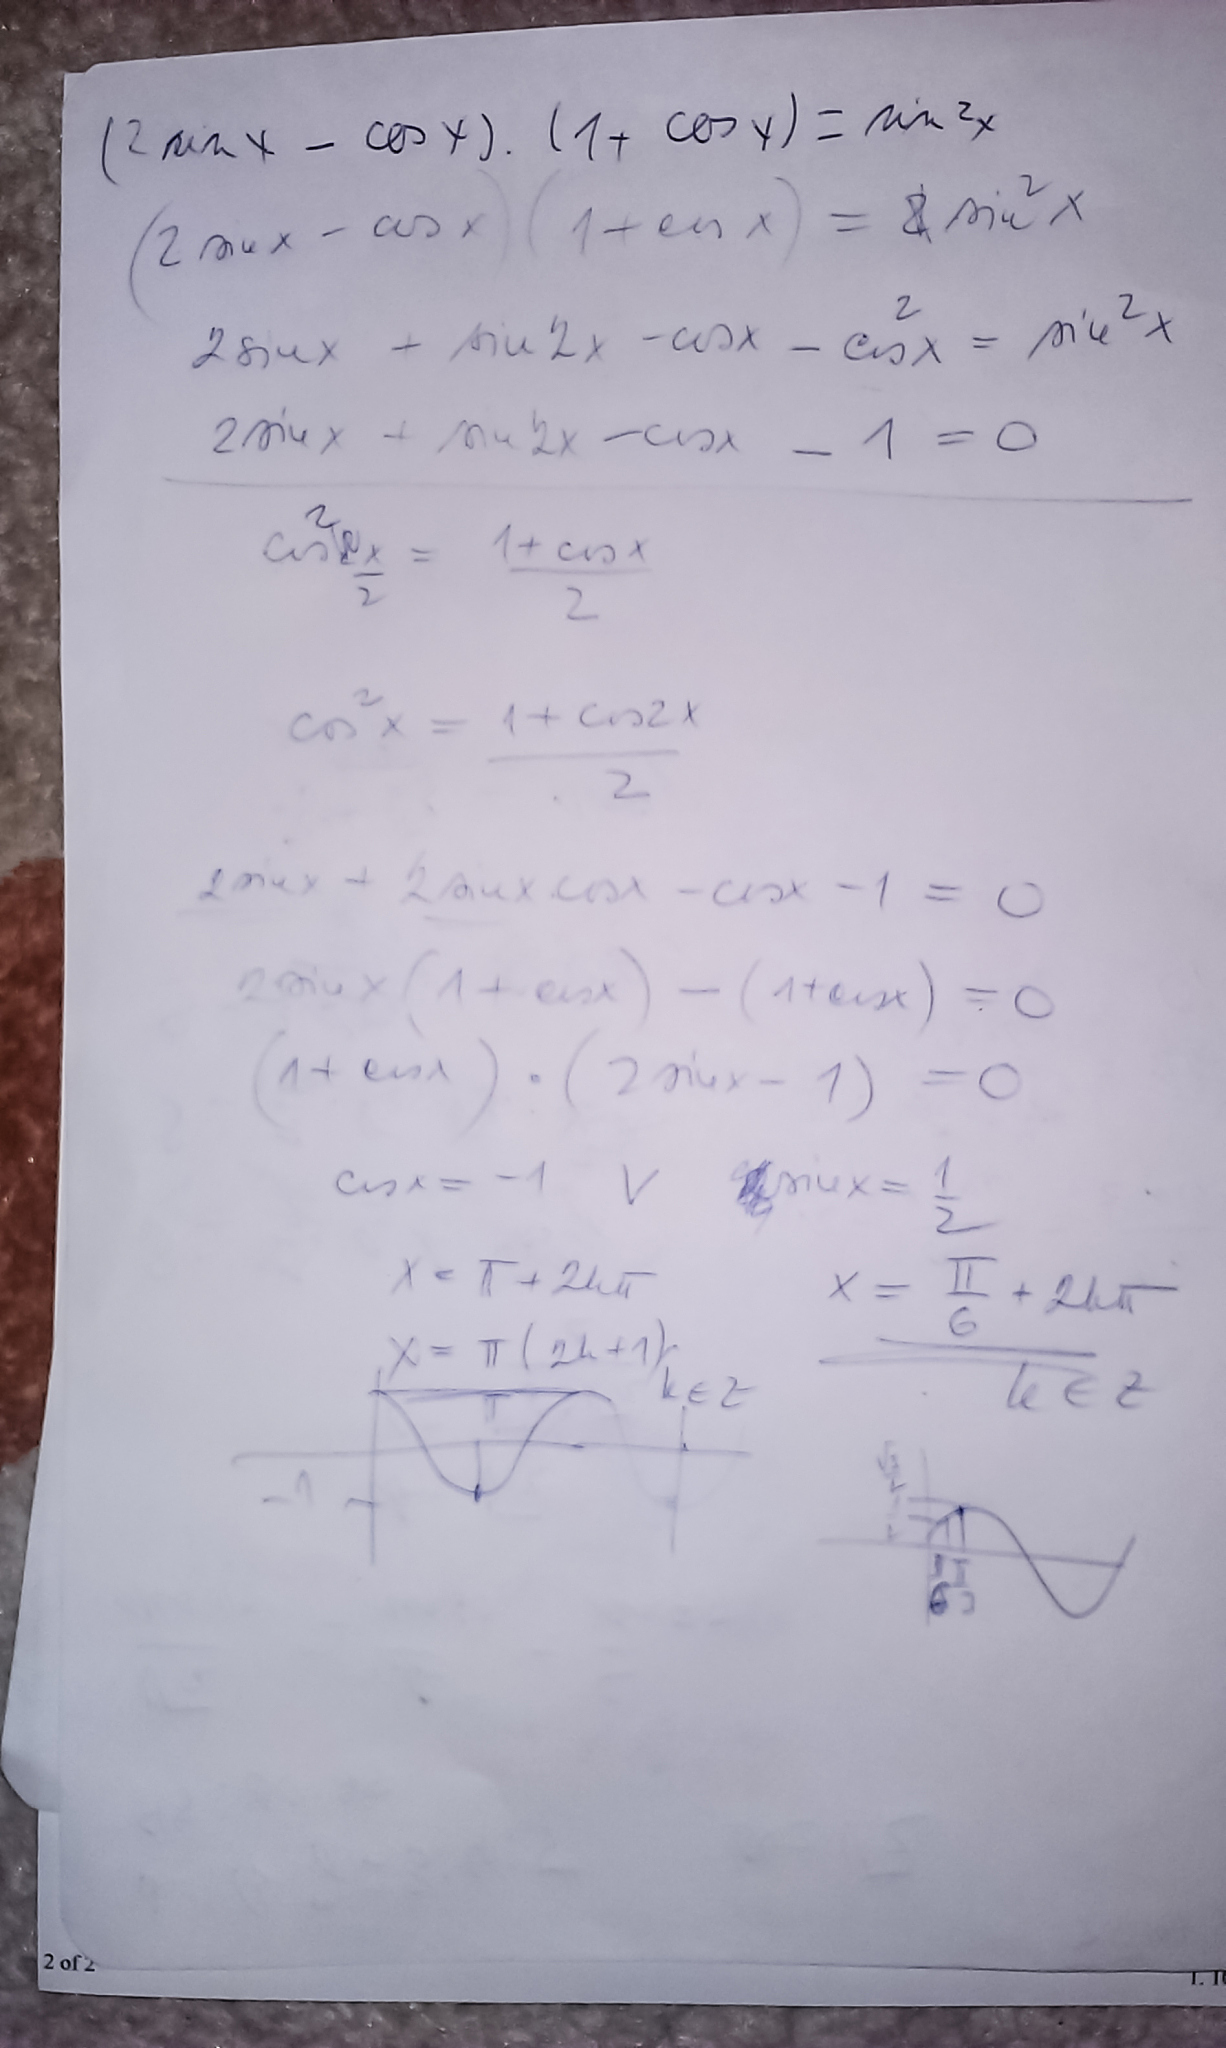 (2 sin x - cos x). (1 + cos x) = sin²x
(2 sin x - cos x)(1 + cos x) = sin²x
2 sin x + sin 2x - cos x - cos²x = sin²x
2 sin x + sin 2x - cos x - 1 = 0
cos² x/2 = (1 + cos x)/2
cos²x = (1 + cos 2x)/2
2 sin x + 2 sin x cos x - cos x - 1 = 0
2 sin x (1 + cos x) - (1 + cos x) = 0
(1 + cos x) · (2 sin x - 1) = 0
cos x = -1 V sin x = 1/2
x = π + 2kπ x = π/6 + 2kπ
x = π(2k+1) k ∈ Z
k ∈ Z
π
-1
2 of 2